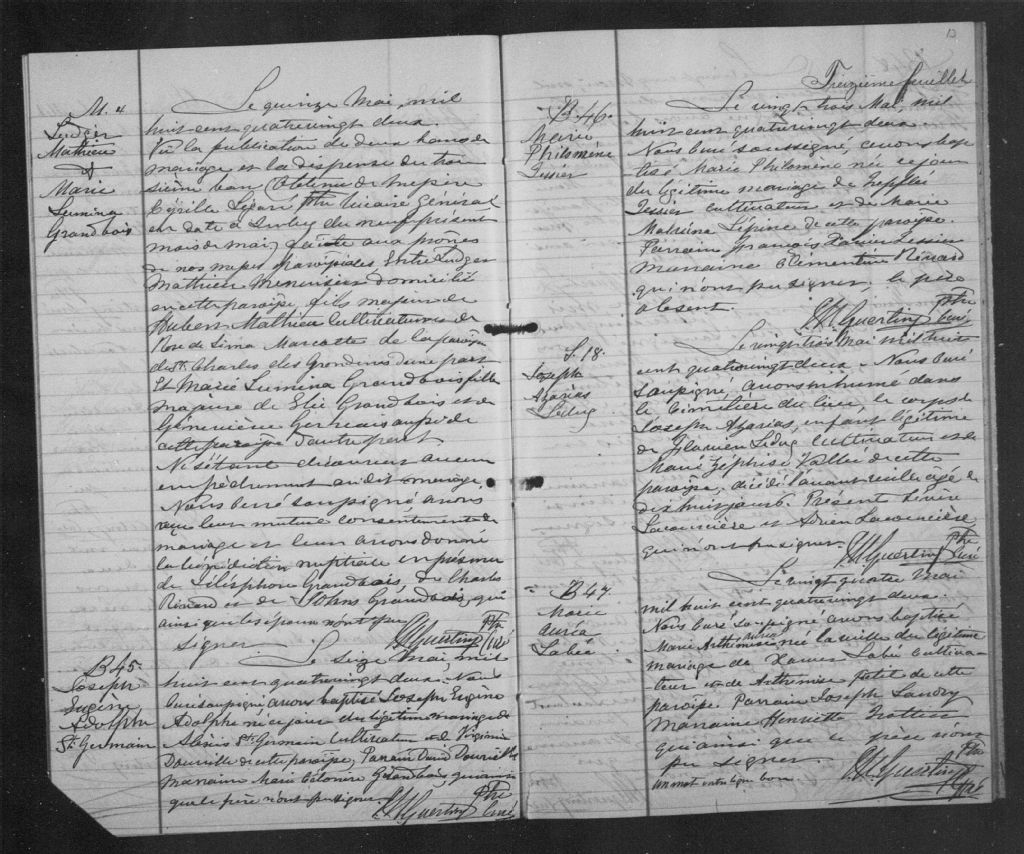 M. 4
Ludger
Mathieu
&
Marie
Lumina
Grandbois
Le quinze Mai, mil
huit cent quatrevingt deux.
Vu la publication de deux bans de
mariage et la dispense du troi
sième ban obtenue de
Cyrille Légaré Ptre Vicaire Général
en date du neuf présent
mois de mai, faite aux prônes
de nos messes paroissiales Entre Ludger
Mathieu Menuisier domicilié
en cette paroisse, fils majeur de
Hubert Mathieu Cultivateur et de
Rose de Lima Marcotte de la paroisse
de St. Charles des Grondines d'une part
Et Marie Lumina Grandbois fille
majeure de Elie Grandbois et de
Geneviève Gervais aussi de
cette paroisse d'autre part
Ne s'étant découvert aucun
empêchement au dit mariage,
Nous Curé soussigné avons
reçu leur mutuel consentement de
mariage et leur avons donné
la bénédiction nuptiale en présence
de Télésphore Grandbois, de Charles
Rinard et de Johns Grandbois, qui
ainsi que les époux n'ont pu
signer. G. Guertin Ptre Curé
B 45
Joseph
Eugène
Adolphe
St. Germain
Le seize Mai mil
huit cent quatrevingt deux. Nous
Curé soussigné avons baptisé Joseph Eugène
Adolphe né ce jour du légitime mariage de
Alexis St. Germain Cultivateur et de Virginie
Douville de cette paroisse, Parrain David Douville
Marraine Marie Grandbois, qui ainsi
que le père n'ont pu signer. Guertin Ptre Curé
13
Treizième feuillet
B 46.
Marie
Philomène
Tessier
Le vingt trois Mai, mil
huit cent quatrevingt deux
Nous Curé soussigné, avons bap
tisé Marie Philomène née ce jour
du légitime mariage de Trefflé
Tessier cultivateur et de Marie
Malvina Lépine de cette paroisse.
Parrain François Xavier Tessier
Marraine Clémentine Rinard
qui n'ont pu signer, le père
absent.
Guertin Ptre Curé
S. 18.
Joseph
Azarias
Leduc
Le vingt trois Mai mil huit
cent quatrevingt deux. Nous Curé
soussigné, avons inhumé dans
le Cimetière du lieu, le corps de
Joseph Azarias, enfant légitime
de Flavien Leduc Cultivateur et de
Marie Zéphise Vallée de cette
paroisse, décédé l'avant veille âgé de
dix huit jours. Présent
Lacoursière et Adrien Lacoursière
qui n'ont pu signer. Guertin Ptre Curé
B 47
Marie
Auréa
Labée
Le vingt quatre Mai
mil huit cent quatrevingt deux.
Nous Curé soussigné avons baptisé
Marie Arthémise Auréa née la veille du légitime
mariage de Xavier Labée Cultiva-
teur et de Arthémise petit de cette
paroisse Parrain Joseph Landry
Marraine Henriette Trottier
qui ainsi que le père n'ont
pu signer.
un mot entreligne bon. Guertin Ptre Curé